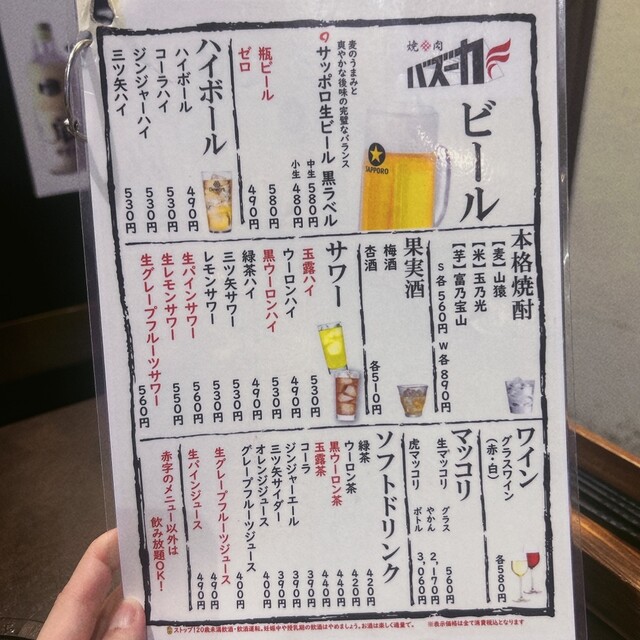 焼肉
バズーカ
ビール
麦のうまみと
爽やかな後味の完璧なバランス
サッポロ生ビール 黒ラベル
中生 580円
小生 480円
瓶ビール 580円
ゼロ 490円
SAPPORO
ハイボール
ハイボール 490円
コーラハイ 530円
ジンジャーハイ 530円
三ツ矢ハイ 530円
本格焼酎
【麦】山猿
【米】玉乃光
【芋】富乃宝山
S 各560円 W 各890円
果実酒
梅酒
杏酒
各510円
サワー
玉露ハイ 530円
ウーロンハイ 490円
黒ウーロンハイ 530円
緑茶ハイ 490円
三ツ矢サワー 530円
レモンサワー 530円
生パインサワー 560円
生レモンサワー 550円
生グレープフルーツサワー 560円
ワイン
グラスワイン
(赤・白)
各580円
マッコリ
生マッコリ グラス 560円
やかん 2,170円
虎マッコリ ボトル 3,060円
ソフトドリンク
緑茶 420円
ウーロン茶 420円
黒ウーロン茶 440円
玉露茶 440円
コーラ 390円
ジンジャーエール 390円
三ツ矢サイダー 390円
オレンジジュース 400円
グレープフルーツジュース 400円
生グレープフルーツジュース 490円
生パインジュース 490円
赤字のメニュー以外は
飲み放題OK!
ストップ!20歳未満飲酒・飲酒運転。妊娠中や授乳期の飲酒はやめましょう。お酒は楽しく適量で。
※表示価格は全て消費税込となります